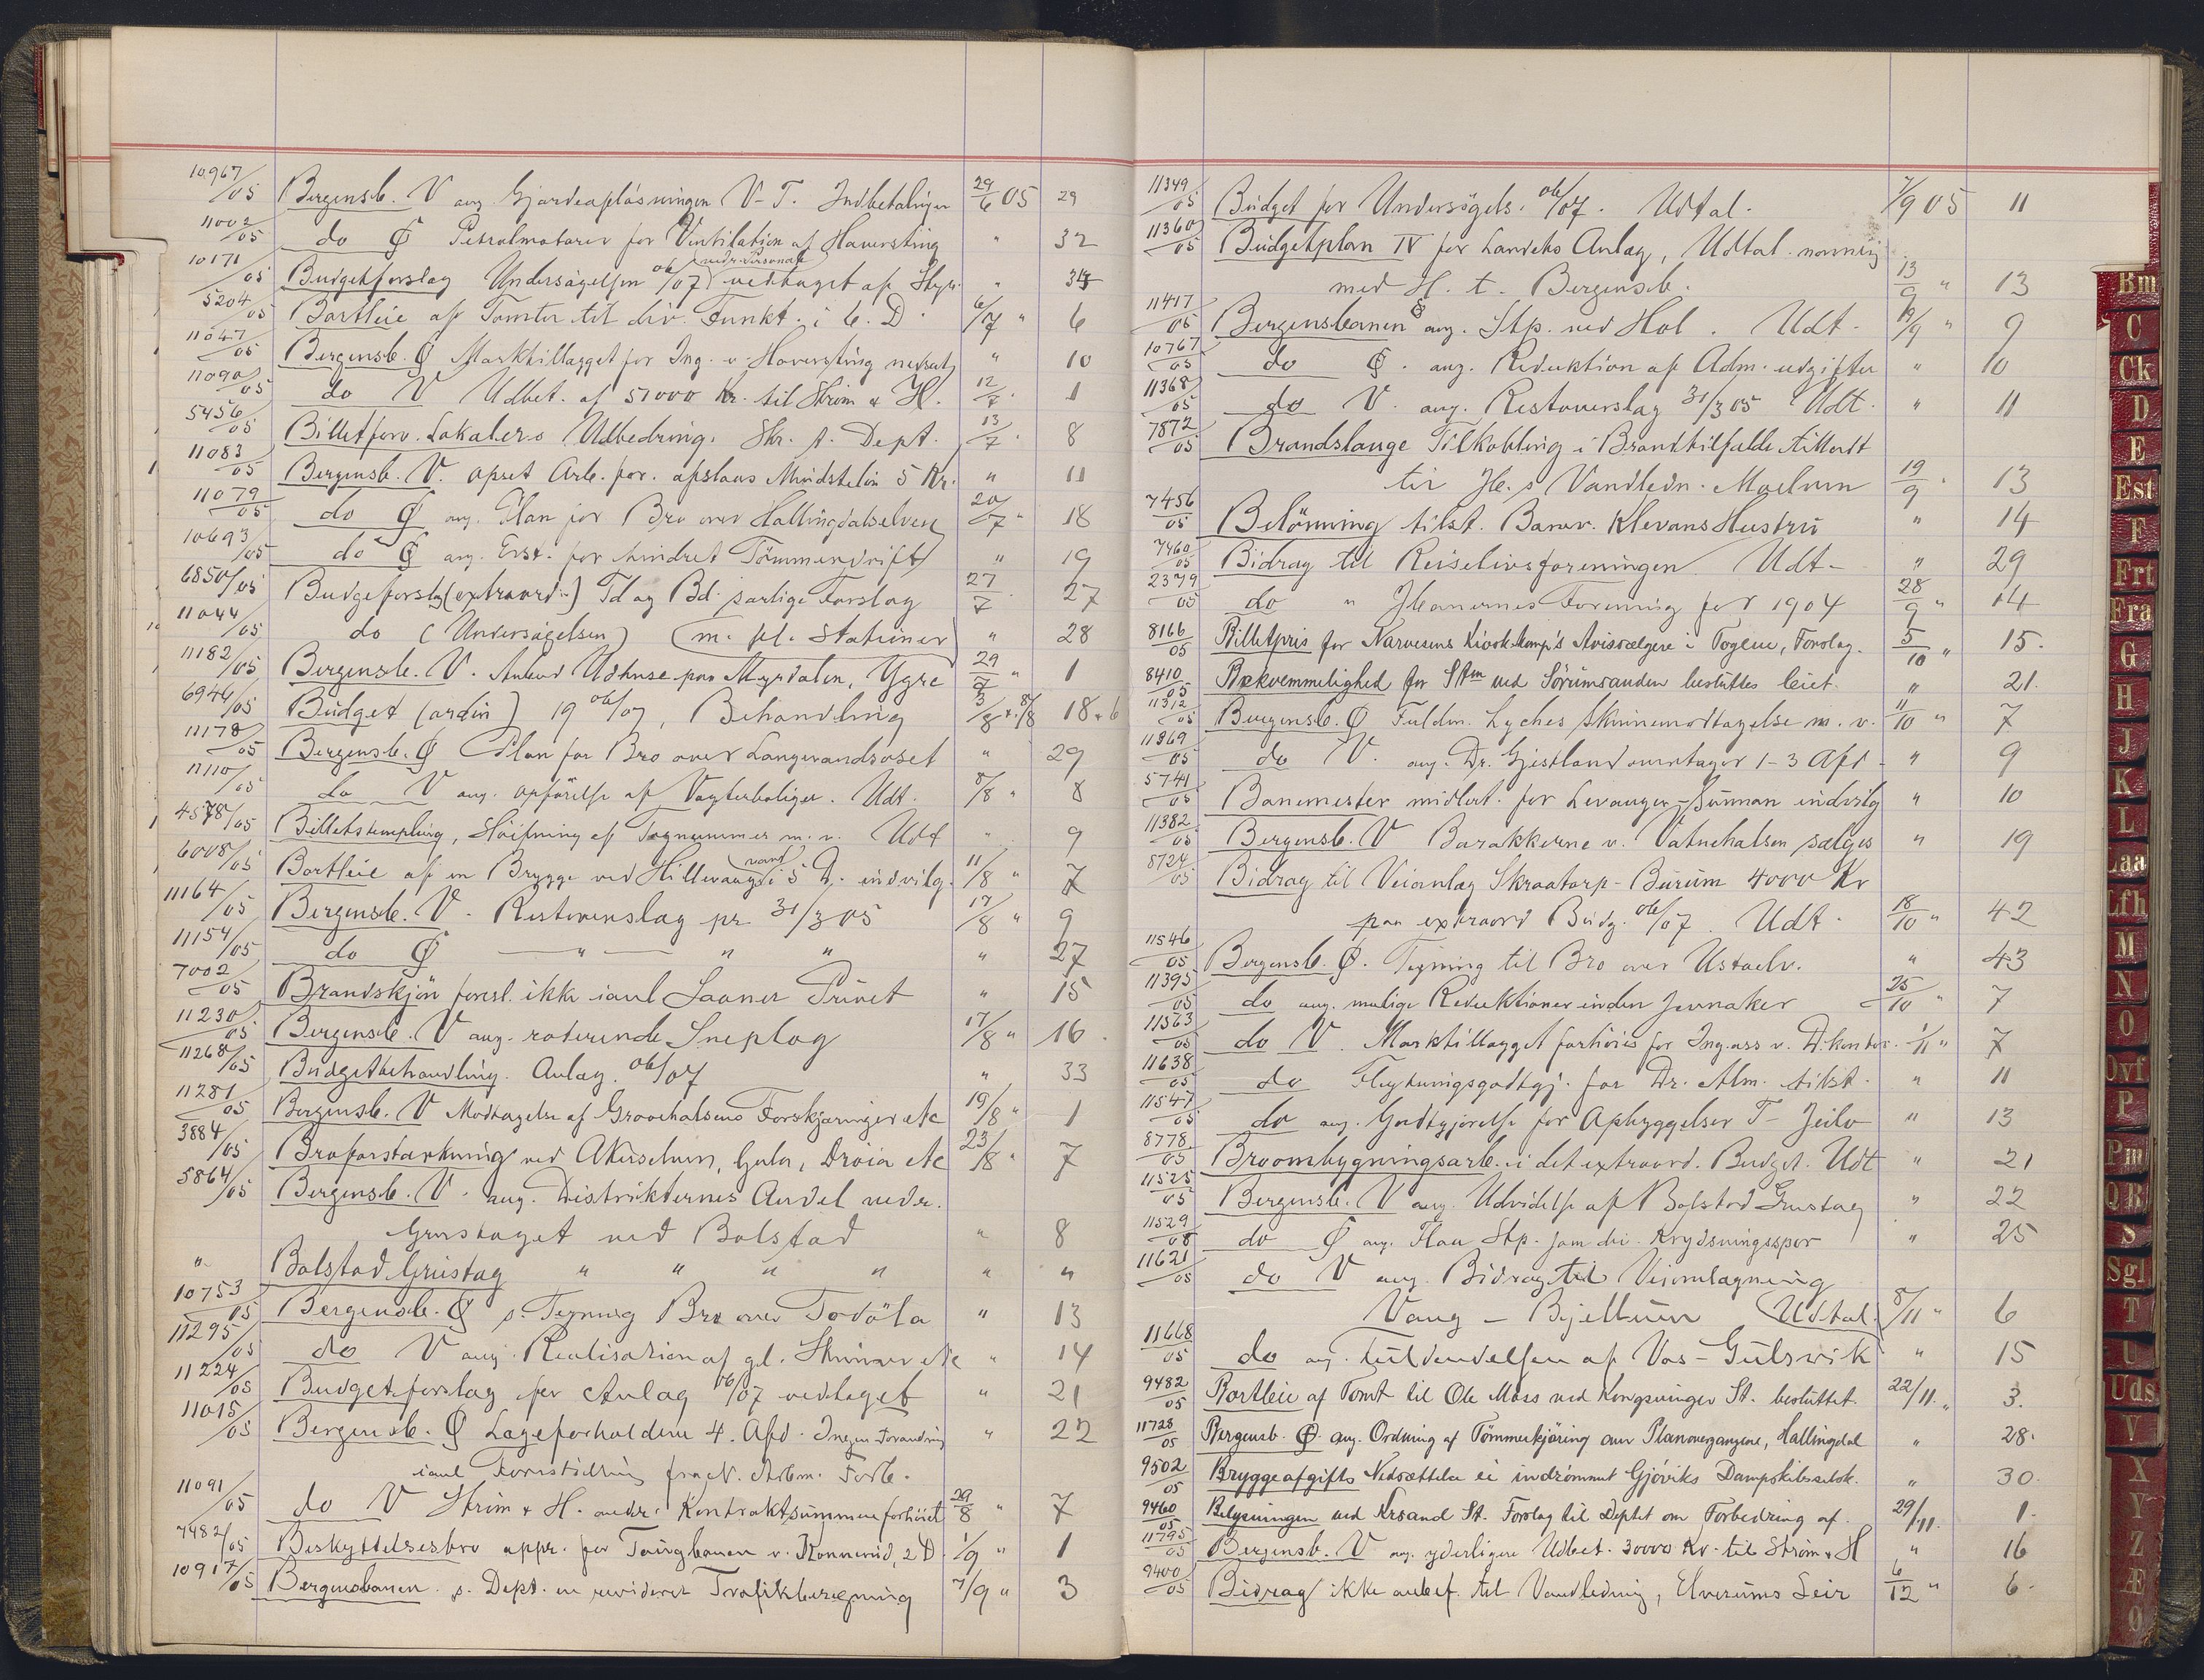 10967/05 Bergensb. V ang Gjærdeopløsningen V-T. Indbetalinger 29/6 05 29
11002/05 do Ø Petrolmotorer for Ventilation af Haversting " 32
10171/05 Budgetforslag Undersøgelsen 06/07 vedr. Personale vedtaget af Styr. " 34
5204/05 Bortleie af Tomter til div. Funkt. i 6. D. 6/7 " 6
11047/05 Bergensb. Ø Marktillægget for Ing. v. Haversting nedsat " 10
11090/05 do V Udbet. af 51000 Kr. til Strøm & H. 12/7 " 1
5456/05 Billetforv. Lokalers Udbedring. Skr. t. Dept. 13/7 " 8
11083/05 Bergensb. V. Opset Arb. for. afslaaes Mindstelön 5 Kr. " 11
11079/05 do Ø ang. Plan for Bro over Hallingdalselven 20/7 " 18
10693/05 do Ø ang. Erst. for hindret Tömmerdrift " 19
6850/05 Budgetforslag (extraord.) Td og Bd. særlige Forslag 27/7 " 27
11044/05 do (Undersøgelsen) (m. fl. Stationer) " 28
11182/05 Bergensb. V. Anbud Udhuse paa Myrdalen, Ygre 29/7 " 1
6946/05 Budget (ordin) 19 06/07, Behandling 3/8 + 8/8 18 + 6
11178/05 Bergensb. Ø Plan for Bro over Langevandsoset " 29
11110/05 do V ang. Opførelse af Vogterboliger. Udt. 8/8 " 8
4578/05 Billetstempling, Slöifning af Tognummer m. v. Udt " 9
6008/05 Bortleie af en Brygge ved Hillevaagsvand i 5 D. indvilg. 11/8 " 7
11164/05 Bergensb. V. Restoverslag pr 31/3 05 17/8 " 9
11154/05 do Ø " " " " 27
7002/05 Brandskjön foresl. ikke iaul Laaner Privet " 15
11230/05 Bergensb. V ang. roterende Sneplog 17/8 " 16
11268/05 Budgetbehandling. Anlæg. 06/07 " 33
11281/05 Bergensb. V Modtagelse af Gravehalsens Forskjæringer etc 19/8 " 1
3884/05 Broforstærkning ved Akerselven, Gula, Droia etc 23/8 " 7
5864/05 Bergensb. V. ang. Distrikternes Andel vedr.
Grustaget ved Bolstad " 8
" Bolstad Grustag " " " " " "
10753/05 Bergensb. Ø s. Tegning Bro over Todöla " 13
11295/05 do V ang. Realisation af gl. Skinner etc " 14
11224/05 Budgetforslag for Anlæg 06/07 vedtaget " 21
11015/05 Bergensb. Ø Lægeforholdene 4. Afd. Ingen Forandring " 22
iaul Forestilling fra N. Arbm. Forb.
11091/05 do V Strøm & H. andr. Kontraktsummen forhöiet 29/8 " 7
7482/05 Beskyttelsesbro appr. for Taugbanen v. Konnerud, 2 D. 1/9 " 1
10917/05 Bergensbanen s. Dept. en revideret Trafikberegning 7/9 " 3
11349/05 Budget for Undersøgels. 06/07. Udtal. 7/9 05 11
11360/05 Budgetplan IV for Landets Anlæg, Udtal. navnlig
med H. t. Bergensb. 13/9 " 13
11417/05 Bergensbanen Ø ang. Stp. ved Hol. Udt. 19/9 " 9
10767/05 do Ø. ang. Reduktion af Adm. udgifter " 10
11368/05 do V. ang. Restoverslag 31/3 05 Udt. " 11
7872/05 Brandslange Tilkobling i Brandtilfælde tilladt
til H.s Vandledn. Moelven 19/9 " 13
7456/05 Belönning tilst. Banev. Klevans Hustru " 14
7460/05 Bidrag til Reiselivsforeningen Udt. " 29
2379/05 do " Jbanernes Forening for 1904 28/9 " 14
8166/05 Billetpris for Narvesens Kioskkomp's Avissælgere i Togene, Forslag. 5/10 " 15.
8410/05 Bekvemmelighed for Stm ved Sörumsanden besluttes leiet. " 21.
11312/05 Bergensb. Ø Fuldm. Lyches Skinnemodtagelse m. v. 11/10 " 7
11369/05 do V. ang. Dr. Gjestland overtager 1-3 Afd. " 9
5741/05 Banemester midlert. for Levanger-Sunnan indvilg " 10
11382/05 Bergensb. V Barakkerne v. Vatnehalsen sælges " 19
8724/05 Bidrag til Veianlæg Skraatorp - Burum 4000 Kr
paa extraord Budg. 06/07. Udt. 18/10 " 42
11546/05 Bergensb. Ø. Tegning til Bro over Ustaelv. " 43
11395/05 do ang. mulige Reduktioner inden Jevnaker 25/10 " 7
11563/05 do V. Marktillægget forhöies for Ing.ass v. D.kontor. 1/11 " 7
11638/05 do Flytningsgodtgj. for Dr. Alm. tilst. " 11
11547/05 do ang. Godtgjörelse for Ophyggelser T - Jeilo " 13
8778/05 Broombygningsarb. i det extraord. Budget. Udt " 21
11525/05 Bergensb. V ang. Udvidelse af Bolstad Grustag " 22
11529/05 do Ø ang. Flaa Stp. som bi- Krydsningsspor " 25
11621/05 do V ang. Bidrag til Veiomlægning
Vang - Bjelluen Udtal. 8/11 " 6
11668/05 do ang. Fuldendelsen af Vos-Gulsvik " 15
9482/05 Bortleie af Tomt til Ole Moss ved Kongsvinger St. besluttet. 22/11. " 3.
11728/05 Bergensb. Ø. ang. Ordning af Tömmerkjöring over Planovergangene, Hallingdal " 28.
9502/05 Bryggeafgifts Nedsættelse ei indrömmet Gjöviks Dampskibsselsk. " 30.
9460/05 Belysningen ved Krsand St. Forslag til Deptet om Forbedring af. 29/11. 1.
11795/05 Bergensb. V ang. yderligere Udbet. 30000 Kr. til Strøm & H " 16
9400/05 Bidrag ikke anbef. til Vandledning, Elverums Leir 6/12 " 6.
Bm
C
Ck
D
E
Est
F
Frt
Fra
G
H
J
K
L
Laa
Lfh
M
N
O
Ovf
P
Pm
Q R
S
Sgl
T
U
Uds
V
X
Y
Z
Æ
Ø